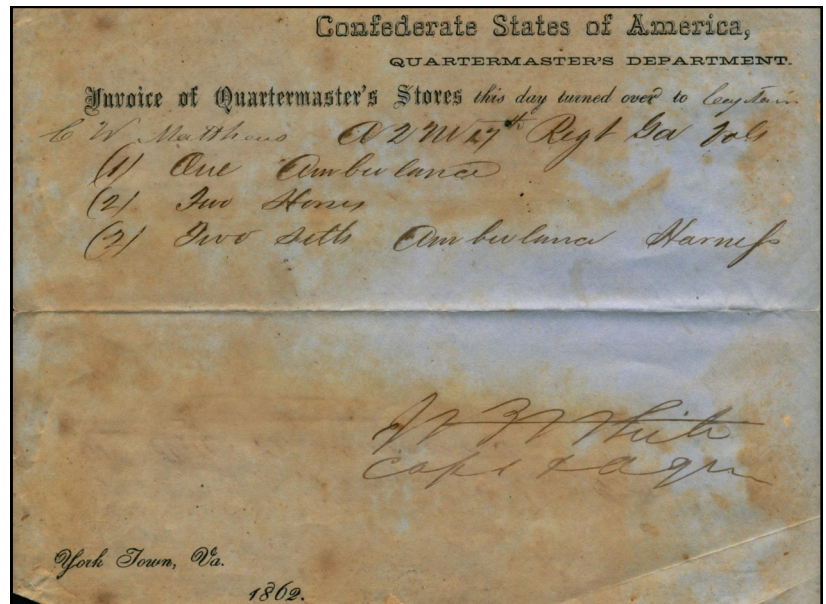 Confederate States of America,
QUARTERMASTER'S DEPARTMENT.
Invoice of Quartermaster's Stores this day turned over to Captain
C W Matthews A 2 M 17th Regt Ga Vols
(1) One Ambulance
(2) Two Horses
(2) Two setts Ambulance Harness
White
Capt & A Q M
York Town, Va.
1862.